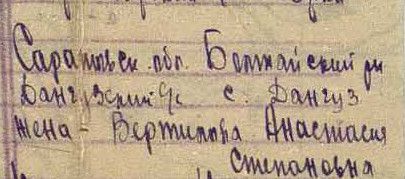 Саратовск. обл. Балтайский рн
Дангузский с/с с. Дангуз
Жена - Вертилова Анастасия
Степановна